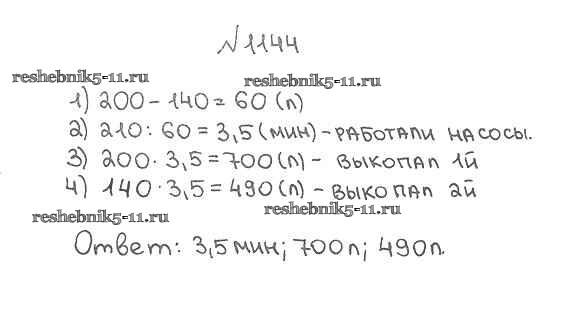 №1144
reshebnik5-11.ru reshebnik5-11.ru
1) 200 - 140 = 60 (л)
2) 210 : 60 = 3,5 (мин) - РАБОТАЛИ НАСОСЫ.
3) 200 · 3,5 = 700 (л) - ВЫКОПАЛ 1й
4) 140 · 3,5 = 490 (л) - ВЫКОПАЛ 2й
reshebnik5-11.ru reshebnik5-11.ru
Ответ: 3,5 мин; 700л; 490л.